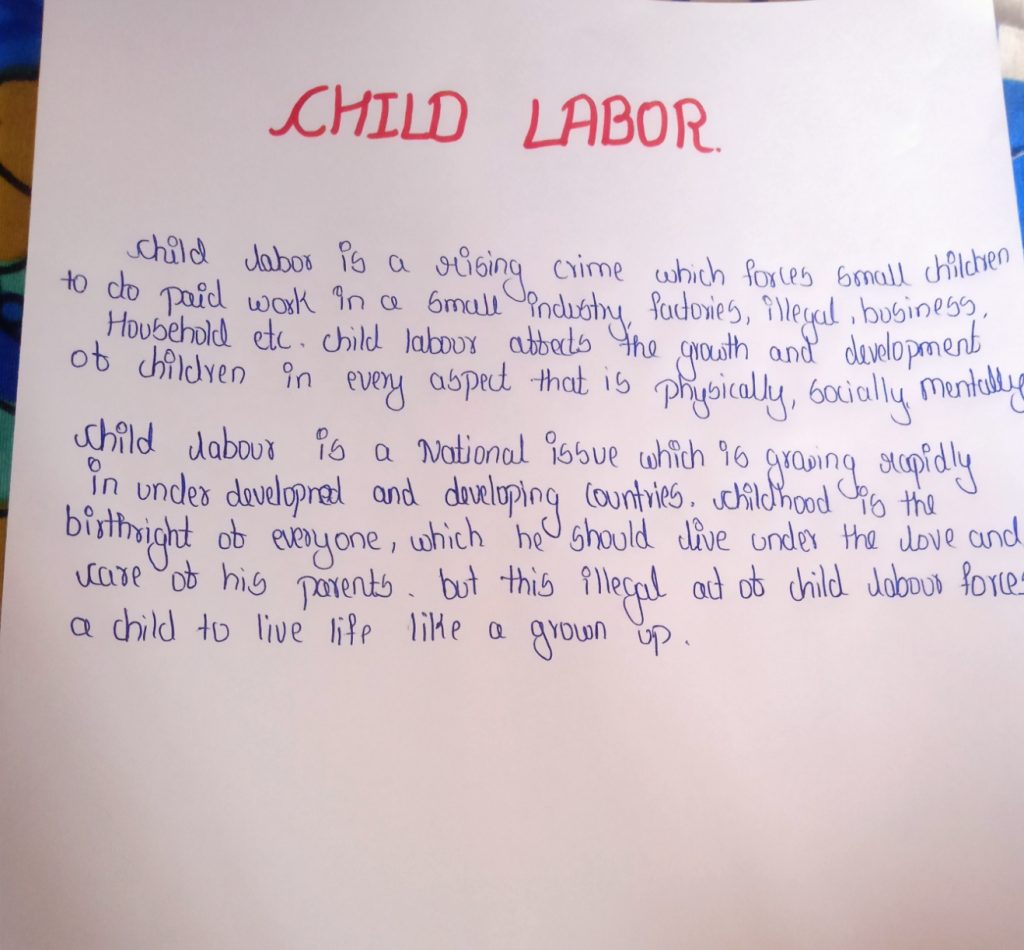 CHILD LABOR.
child labor is a rising crime which forces small children
to do paid work in a small industry, factories, illegal, business,
Household etc. child labour affects the growth and development
of children in every aspect that is physically, socially, mentally
child labour is a National issue which is growing rapidly
in under developned and developing countries. childhood is the
birthright of everyone, which he should live under the love and
care of his parents. but this illegal act of child labour forces
a child to live life like a grown up.